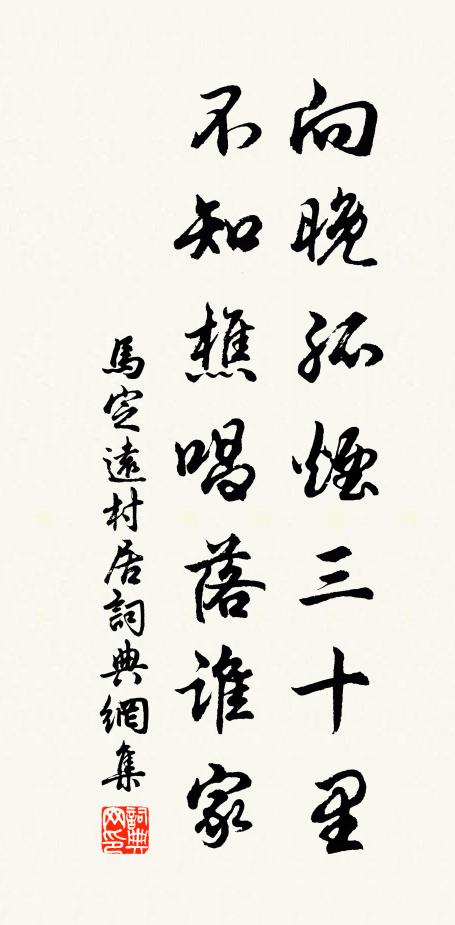 向晚孤煙三十里
不知樵唱落誰家
馬定遠村居詞典網集
詞典
网印